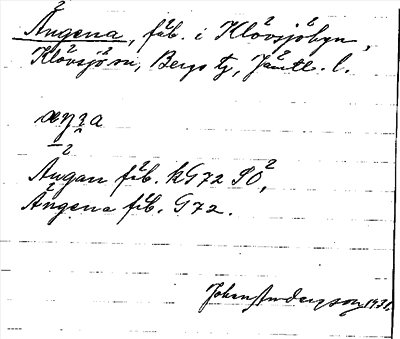 Ängena, fäb. i Klövsjöbyn,
Klövsjö sn, Bergs tg, Jämtl. l.
æŋ̀a
Ängan fäb. kG72 SO,
Ängena fäb. G72.
Johan Anderzson 1931.